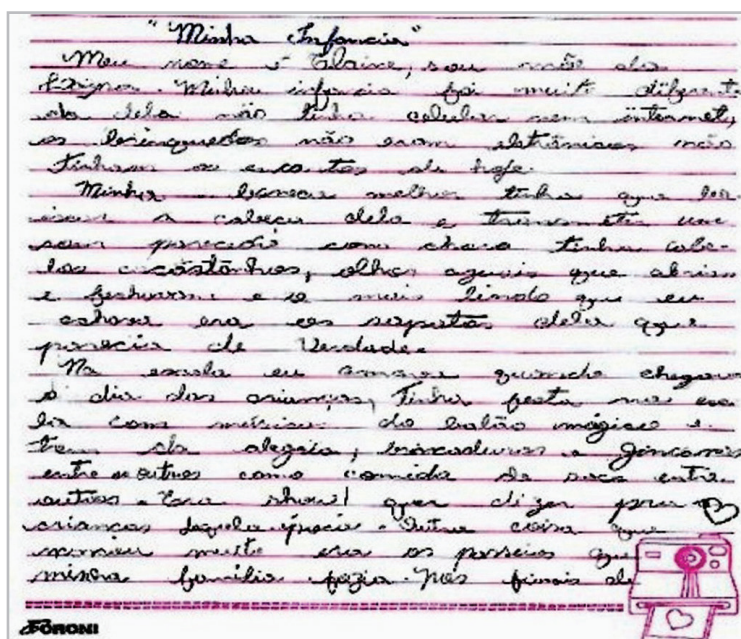 "Minha Infancia"
Meu nome é Elaine, sou mãe da
Minha infancia foi muito diferente
da dela não tinha celular nem internet,
os brinquedos não eram eletrônicos não
tinham os encantos de hoje.
Minha boneca melhor tinha que
a cabeça dela e transmitia um
som parecido com choro tinha cabe-
los castanhos, olhos azuis que abriam
e fechavam e o mais lindo que eu
achava era os sapatos dela que
parecia de Verdade.
Na escola eu amava quando chegava
o dia das crianças, tinha festa na esco
la com músicas do balão mágico e
trem da alegria, brincadeiras e gincanas
entre outras como corrida de saco entre
outras. Era show! quer dizer pra
crianças daquela época. Outra coisa que
muito era os passeios que
minha família fazia. Nos finais de
FORONI